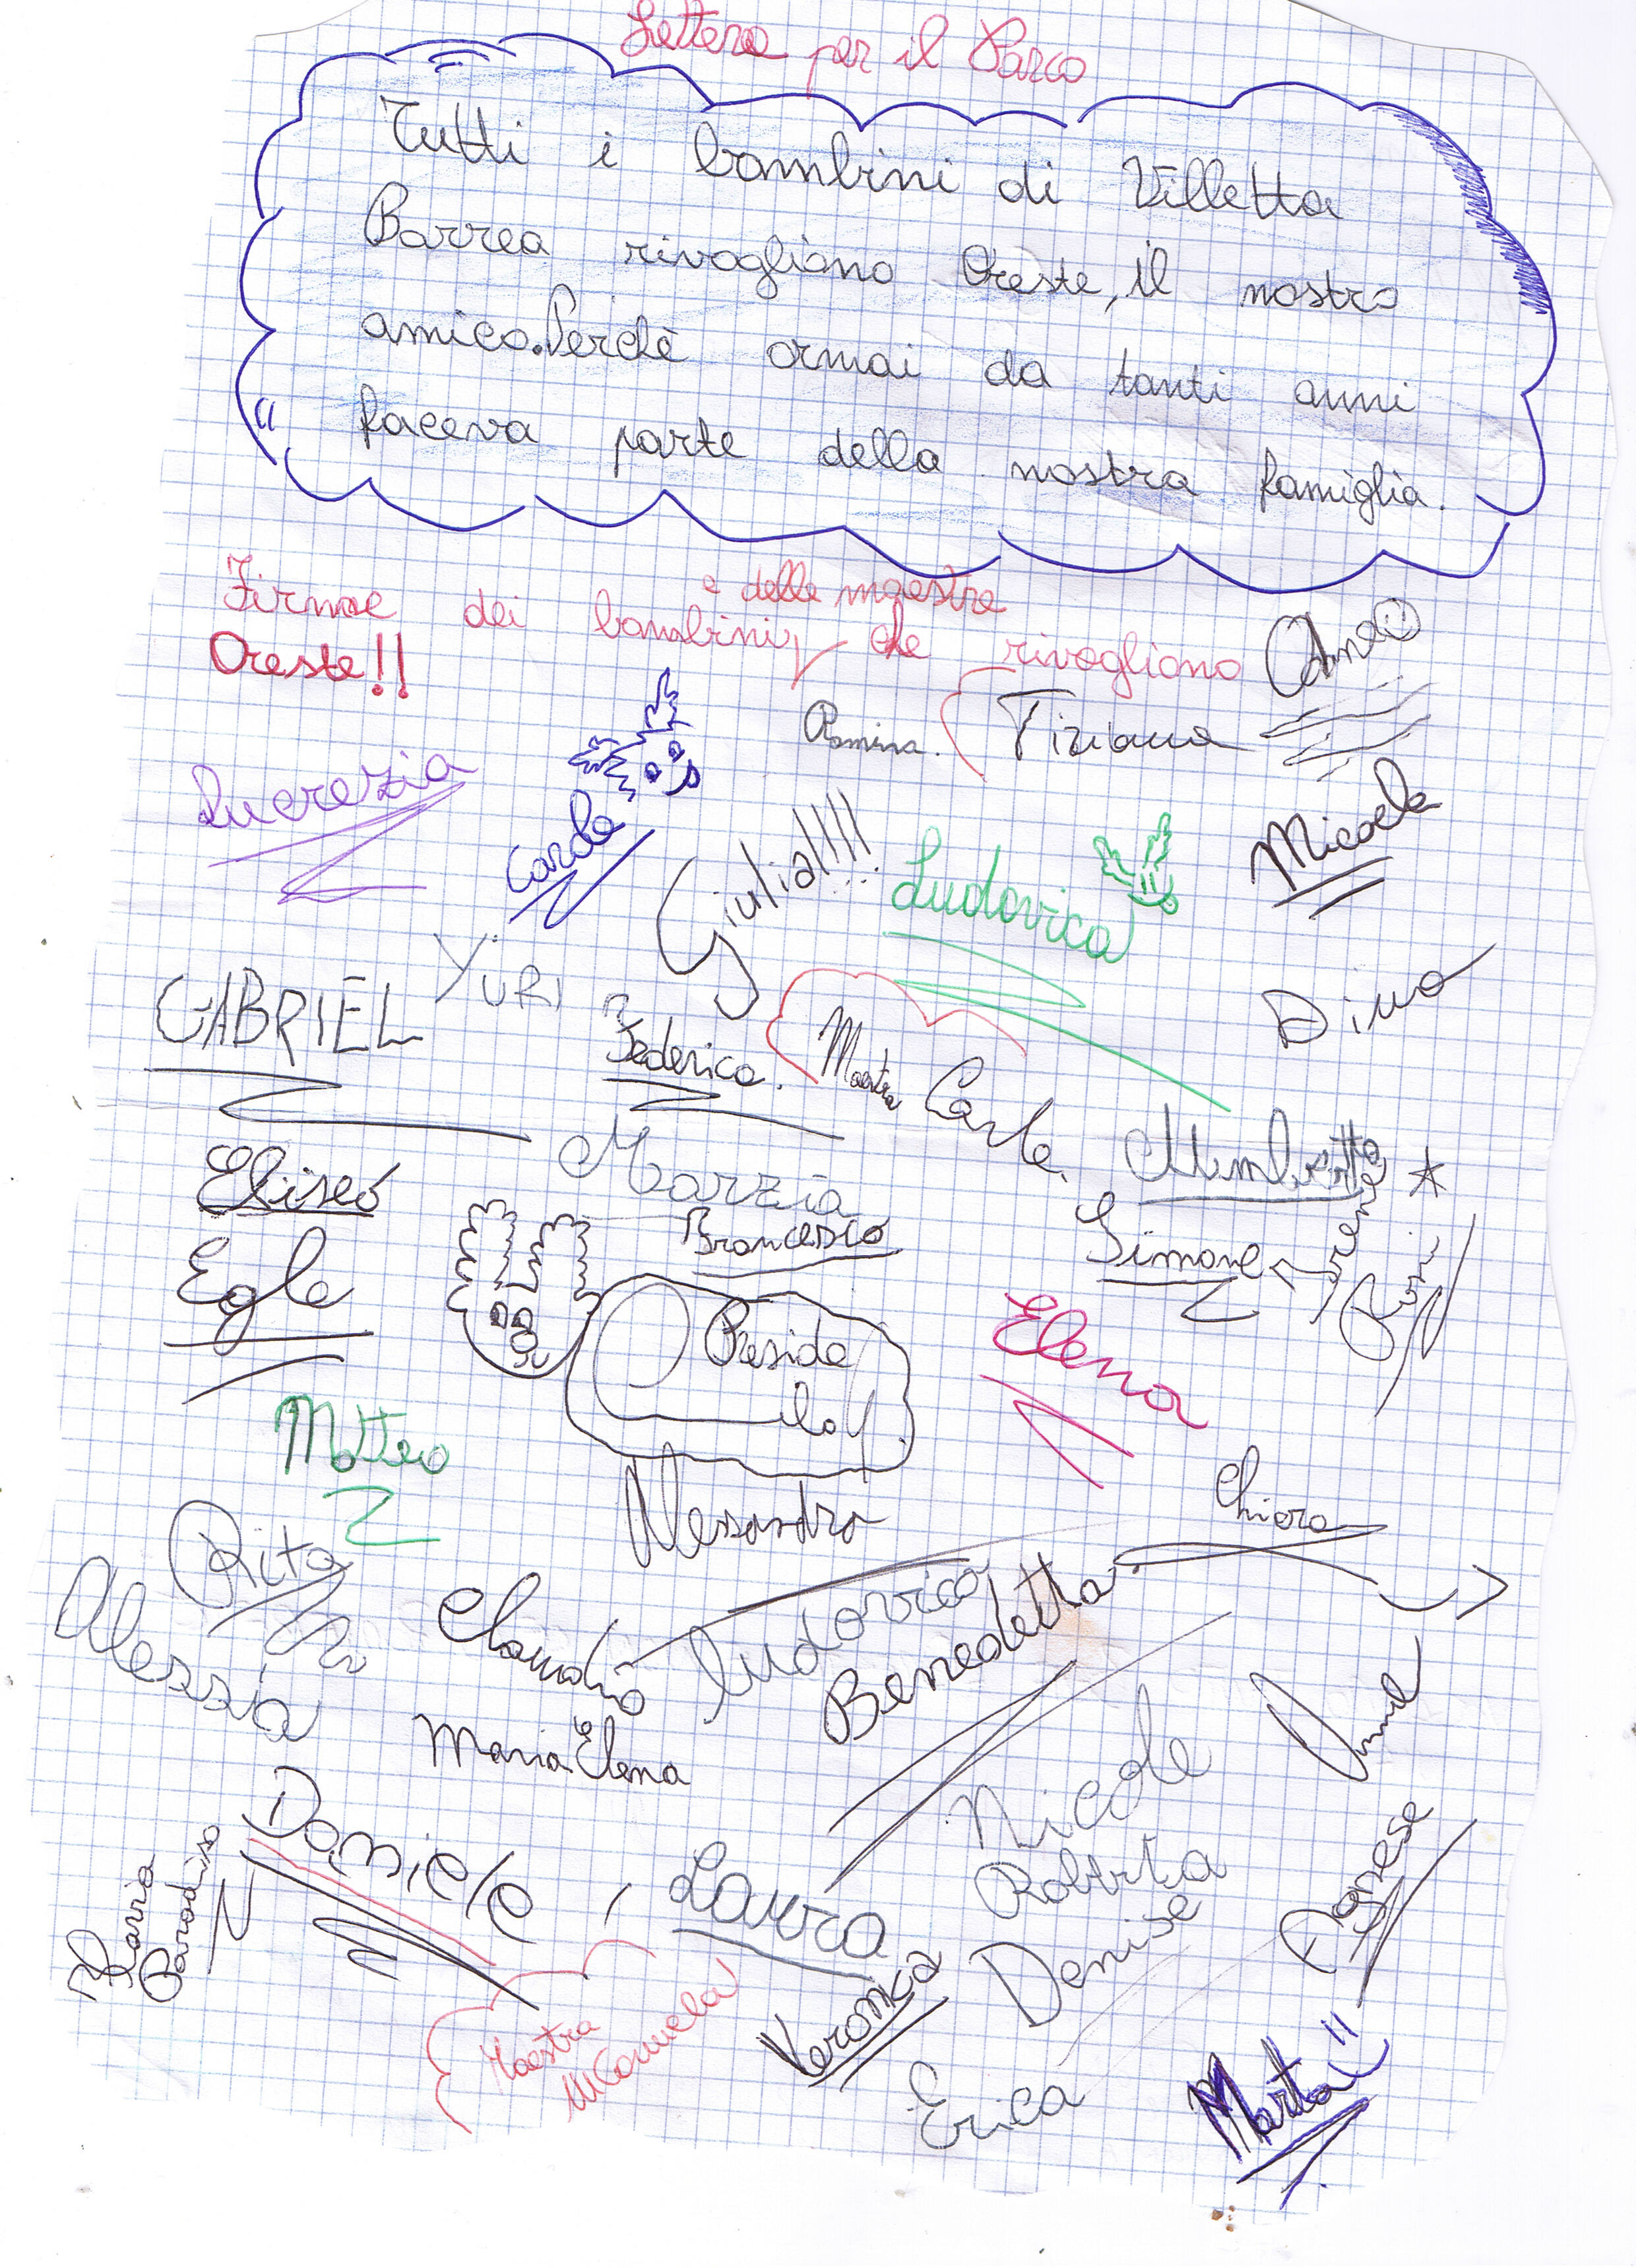 Lettera per il Parco
Tutti i bambini di Villetta
Barrea rivogliono Oreste, il nostro
amico. Perchè ormai da tanti anni
faceva parte della nostra famiglia.
e delle maestre
Firme dei bambini che rivogliono
Oreste!!
Romina.
Tiziana
Lucrezia
Carla
Giulia!!!!
Ludovica
Micaela
GABRIEL
YURI
Federica.
Maestra Carla.
Dina
Eliseo
Marzia
Umberto
Francesco
Simone
Irene
Egle
Preside
Roni
Elena
Matteo
Alessandra
Chiara
Rita
Alessia
Claudio
Ludovica
Benedetta
Maria Elena
Nicole
Daniele
Laura
Roberta
Denise
Agnese
Ilaria
Paradiso
Maestra
Veronica
Erica
Marta